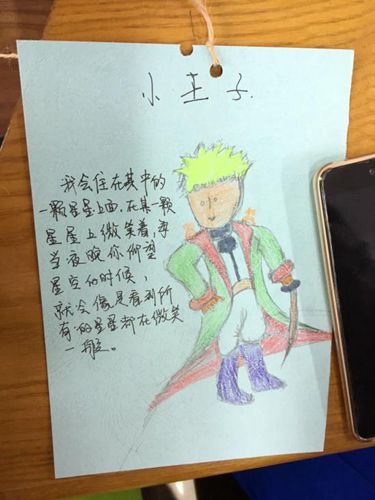 小王子.
我会住在其中的
一颗星星上面,在某一颗
星星上微笑着,每
当夜晚你仰望
星空的时候,
就会像是看到所
有的星星都在微笑
一般。